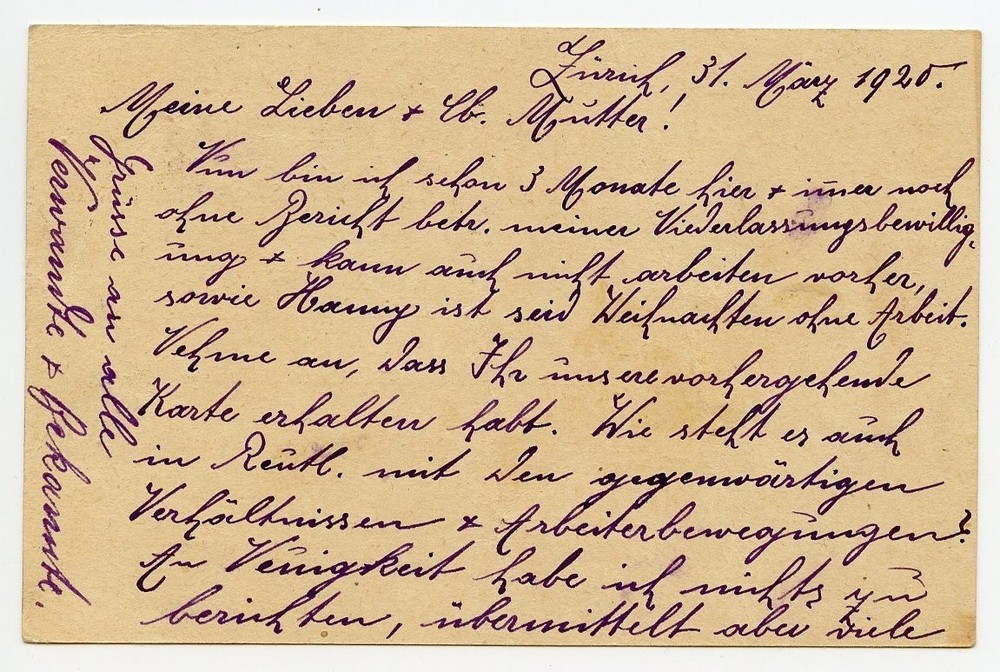 Zürich, 31. März 1920.
Meine Lieben + lb. Mutter!
Nun bin ich schon 3 Monate hier + imer noch
ohne Bericht betr. meiner Niederlassungsbewillig-
ung + kann auch nicht arbeiten vorher,
sowie Hanny ist seid Weihnachten ohne Arbeit.
Nehme an, dass Ihr unsere vorhergehende
Karte erhalten habt. Wie steht es auch
in Reutl. mit den gegenwärtigen
Verhältnissen + Arbeiterbewegungen?
An Neuigkeit habe ich nichts zu
berichten, übermittelt aber viele
Grüsse an alle
Verwandte + Bekannte.